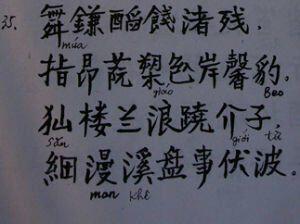 35. 舞鎌醑餞渚残,
múa
指昂蓖槊邑岸馨豹。
giáo Beo
狲楼兰浪蹺介子,
săn giới tử
細漫溪盘事伏波。
man khê